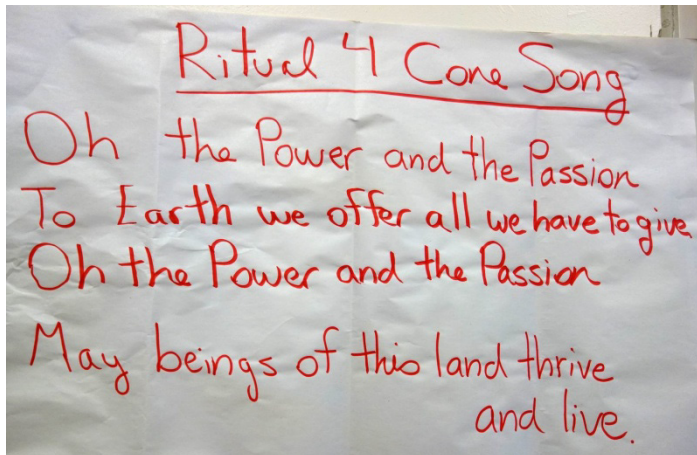 Ritual 4 Cone Song
Oh the Power and the Passion
To Earth we offer all we have to give
Oh the Power and the Passion
May beings of this land thrive
and live.